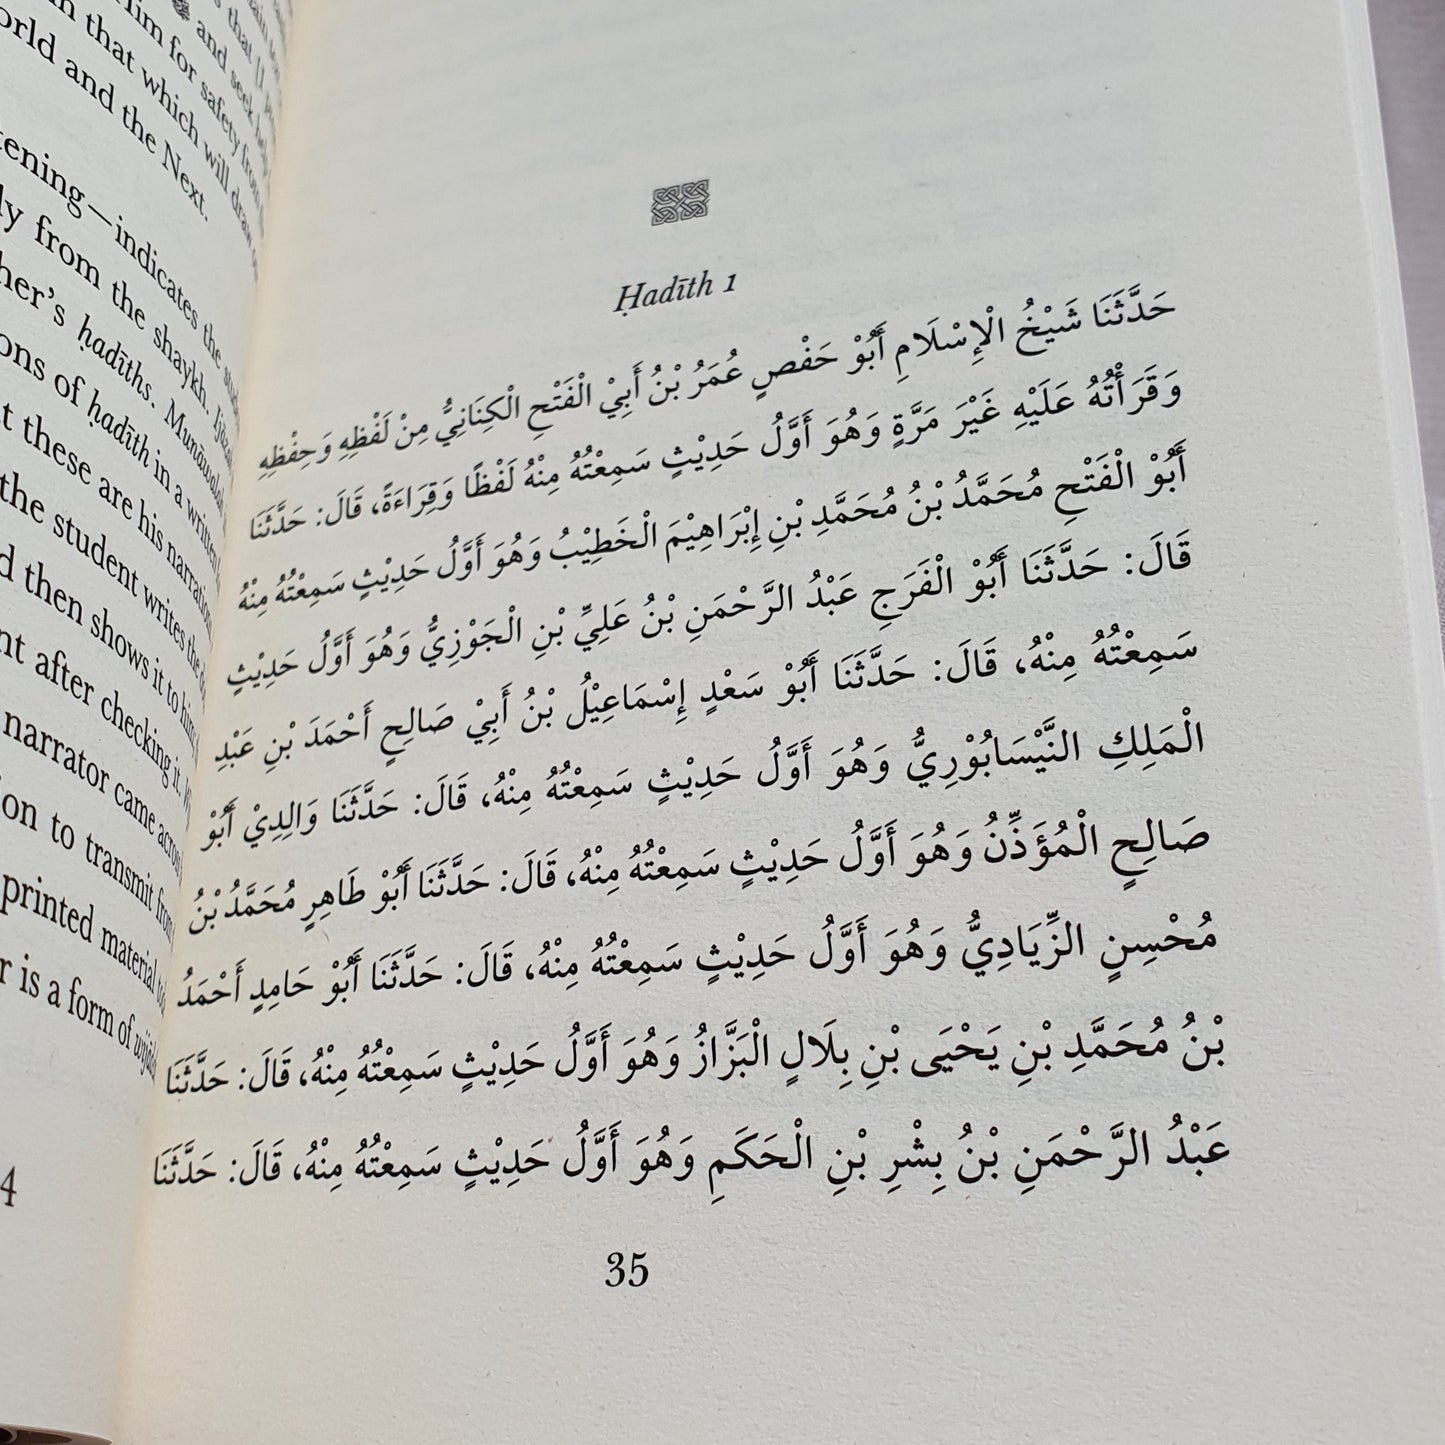 Him for safety from
and seek help
that which will draw
orld and the Next.
tening—indicates the
ly from the shaykh.
her's ḥadīths. Munāwalah
ons of ḥadīth in a written
t these are his narration
the student writes the
d then shows it to him
nt after checking it.
narrator came across
on to transmit from
printed material
r is a form of
4
Ḥadīth 1
حَدَّثَنَا شَيْخُ الْإِسْلَامِ أَبُوْ حَفْصٍ عُمَرُ بْنُ أَبِيْ الْفَتْحِ الْكِنَانِيُّ مِنْ لَفْظِهِ وَحِفْظِهِ
وَقَرَأْتُهُ عَلَيْهِ غَيْرَ مَرَّةٍ وَهُوَ أَوَّلُ حَدِيْثٍ سَمِعْتُهُ مِنْهُ لَفْظًا وَقِرَاءَةً، قَالَ: حَدَّثَنَا
أَبُوْ الْفَتْحِ مُحَمَّدُ بْنُ مُحَمَّدِ بْنِ إِبْرَاهِيْمَ الْخَطِيْبُ وَهُوَ أَوَّلُ حَدِيْثٍ سَمِعْتُهُ مِنْهُ
قَالَ: حَدَّثَنَا أَبُوْ الْفَرَجِ عَبْدُ الرَّحْمَنِ بْنُ عَلِيِّ بْنِ الْجَوْزِيُّ وَهُوَ أَوَّلُ حَدِيْثٍ
سَمِعْتُهُ مِنْهُ، قَالَ: حَدَّثَنَا أَبُوْ سَعْدٍ إِسْمَاعِيْلُ بْنُ أَبِيْ صَالِحٍ أَحْمَدَ بْنِ عَبْدِ
الْمَلِكِ النَّيْسَابُوْرِيُّ وَهُوَ أَوَّلُ حَدِيْثٍ سَمِعْتُهُ مِنْهُ، قَالَ: حَدَّثَنَا وَالِدِيْ أَبُوْ
صَالِحٍ الْمُؤَذِّنُ وَهُوَ أَوَّلُ حَدِيْثٍ سَمِعْتُهُ مِنْهُ، قَالَ: حَدَّثَنَا أَبُوْ طَاهِرٍ مُحَمَّدُ بْنُ
مُحْسِنٍ الزِّيَادِيُّ وَهُوَ أَوَّلُ حَدِيْثٍ سَمِعْتُهُ مِنْهُ، قَالَ: حَدَّثَنَا أَبُوْ حَامِدٍ أَحْمَدُ
بْنُ مُحَمَّدِ بْنِ يَحْيَى بْنِ بِلَالٍ الْبَزَّازُ وَهُوَ أَوَّلُ حَدِيْثٍ سَمِعْتُهُ مِنْهُ، قَالَ: حَدَّثَنَا
عَبْدُ الرَّحْمَنِ بْنُ بِشْرِ بْنِ الْحَكَمِ وَهُوَ أَوَّلُ حَدِيْثٍ سَمِعْتُهُ مِنْهُ، قَالَ: حَدَّثَنَا
35